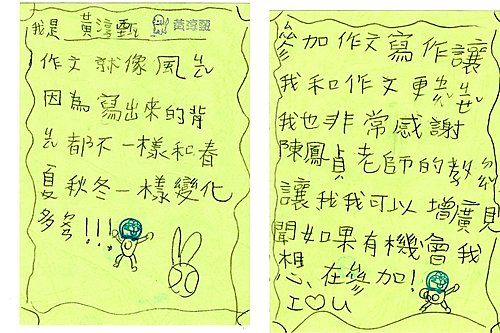 我是 黃淳甄 黃淳甄
作文就像風
因為寫出來的背
都不一樣和春
夏秋冬一樣變化
多多!!!
參加作文寫作讓
我和作文更
我也非常感謝
陳鳳貞老師的教
讓我我可以增廣見
聞如果有機會我
想在參加!
I♡U